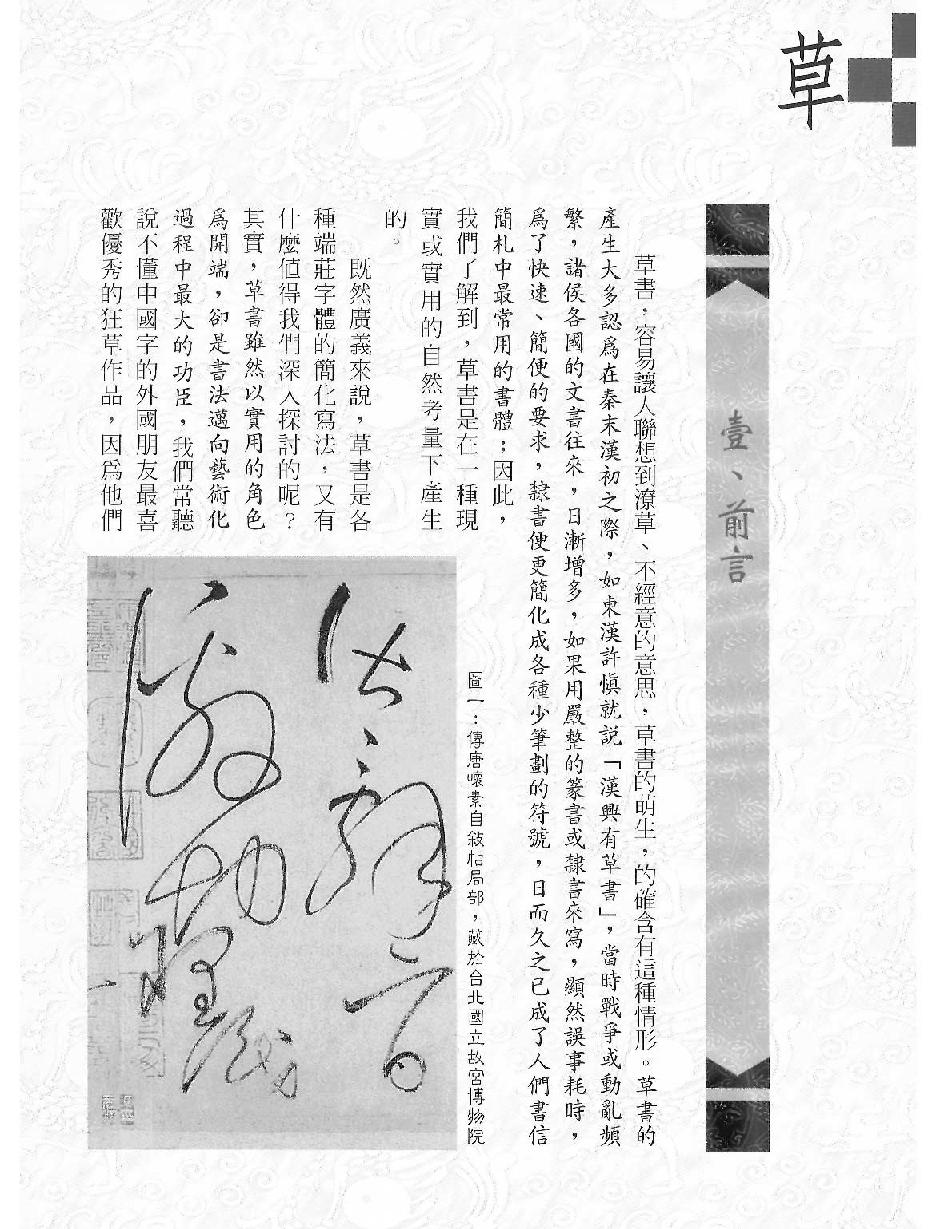 草
壹、前言
草書，容易讓人聯想到潦草、不經意的意思，草書的萌生，的確含有這種情形。草書的
產生大多認爲在秦末漢初之際，如東漢許慎就說「漢興有草書」，當時戰爭或動亂頻
繁，諸侯各國的文書往來，日漸增多，如果用嚴整的篆書或隸書來寫，顯然誤事耗時，
爲了快速、簡便的要求，隸書便更簡化成各種少筆劃的符號，日而久之已成了人們書信
簡札中最常用的書體；因此，
我們了解到，草書是在一種現
實或實用的自然考量下產生
的。
既然廣義來說，草書是各
種端莊字體的簡化寫法，又有
什麼值得我們深入探討的呢？
其實，草書雖然以實用的角色
爲開端，卻是書法邁向藝術化
過程中最大的功臣，我們常聽
說不懂中國字的外國朋友最喜
歡優秀的狂草作品，因爲他們
圖一：傳唐懷素自敘帖局部，藏於台北國立故宮博物院